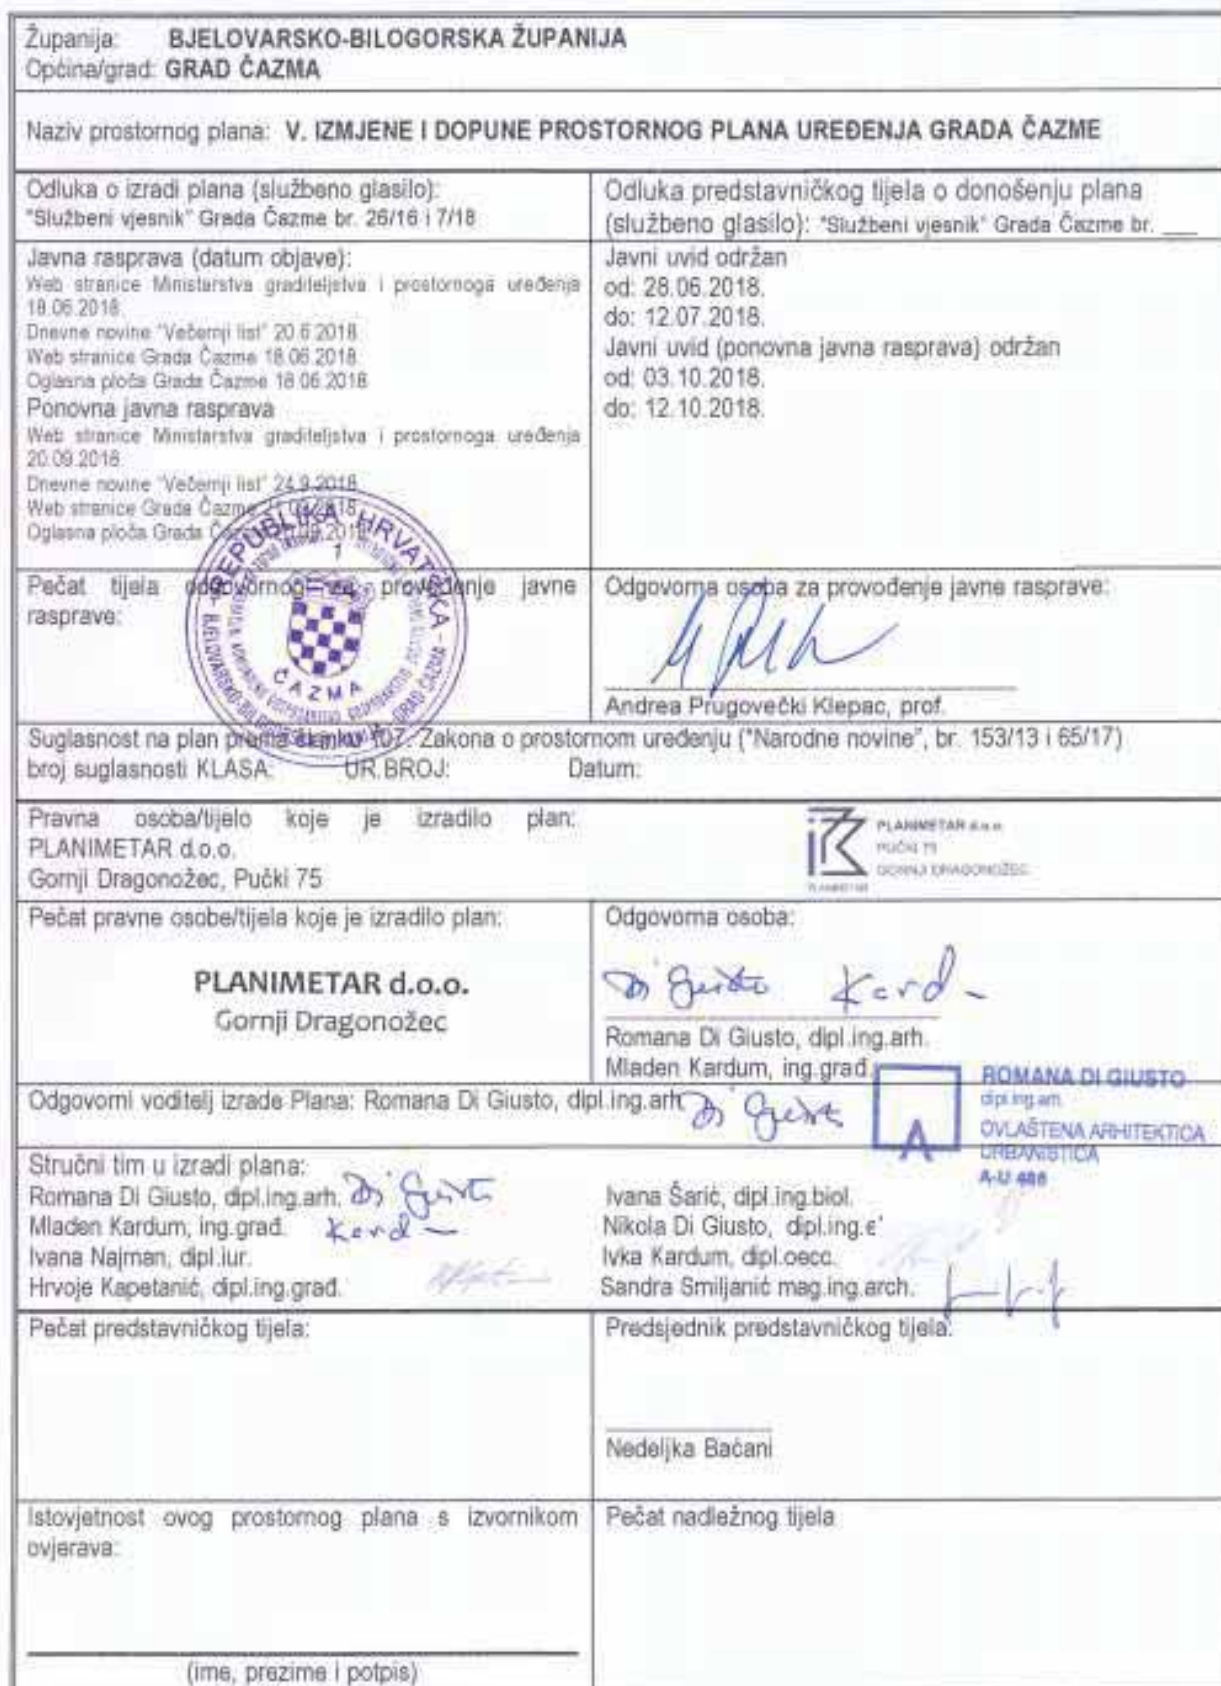 Županija: BJELOVARSKO-BILOGORSKA ŽUPANIJA
Općina/grad: GRAD ČAZMA
Naziv prostornog plana: V. IZMJENE I DOPUNE PROSTORNOG PLANA UREĐENJA GRADA ČAZME
Odluka o izradi plana (službeno glasilo):
"Službeni vjesnik" Grada Čazme br. 26/16 i 7/18
Odluka predstavničkog tijela o donošenju plana
(službeno glasilo): "Službeni vjesnik" Grada Čazme br. ___
Javna rasprava (datum objave):
Web stranice Ministarstva graditeljstva i prostornoga uređenja
18.06.2018.
Dnevne novine "Večernji list" 20.6.2018.
Web stranice Grada Čazme 18.06.2018.
Oglasna ploča Grada Čazme 18.06.2018
Ponovna javna rasprava
Web stranice Ministarstva graditeljstva i prostornoga uređenja
20.09.2018.
Dnevne novine "Večernji list" 24.9.2018
Web stranice Grada Čazme
Oglasna ploča Grada
Javni uvid održan
od: 28.06.2018.
do: 12.07.2018.
Javni uvid (ponovna javna rasprava) održan
od: 03.10.2018.
do: 12.10.2018.
REPUBLIKA HRVATSKA
1
BJELOVARSKO-BILOGORSKA ŽUPANIJA - GRAD ČAZMA
ČAZMA
Pečat tijela odgovornog za provođenje javne
rasprave:
Odgovorna osoba za provođenje javne rasprave:
Andrea Prugovečki Klepac, prof.
Suglasnost na plan prema članku 107. Zakona o prostornom uređenju ("Narodne novine", br. 153/13 i 65/17)
broj suglasnosti KLASA: UR.BROJ: Datum:
Pravna osoba/tijelo koje je izradilo plan:
PLANIMETAR d.o.o.
Gornji Dragonožec, Pučki 75
PLANIMETAR d.o.o.
PUČKI 75
GORNJI DRAGONOŽEC
PLANIMETAR
Pečat pravne osobe/tijela koje je izradilo plan:
PLANIMETAR d.o.o.
Gornji Dragonožec
Odgovorna osoba:
Di Giusto Kard
Romana Di Giusto, dipl.ing.arh.
Mladen Kardum, ing.građ.
Odgovorni voditelj izrade Plana: Romana Di Giusto, dipl.ing.arh.
Di Giusto
A
ROMANA DI GIUSTO
dipl.ing.arh.
OVLAŠTENA ARHITEKTICA
URBANISTICA
A-U 486
Stručni tim u izradi plana:
Romana Di Giusto, dipl.ing.arh. Di Giusto
Mladen Kardum, ing.građ. Kard
Ivana Najman, dipl.iur.
Hrvoje Kapetanić, dipl.ing.građ.
Ivana Šarić, dipl.ing.biol.
Nikola Di Giusto, dipl.ing.
Ivka Kardum, dipl.oecc.
Sandra Smiljanić mag.ing.arch.
Pečat predstavničkog tijela:
Predsjednik predstavničkog tijela:
Nedeljka Baćani
Istovjetnost ovog prostornog plana s izvornikom
ovjerava:
(ime, prezime i potpis)
Pečat nadležnog tijela